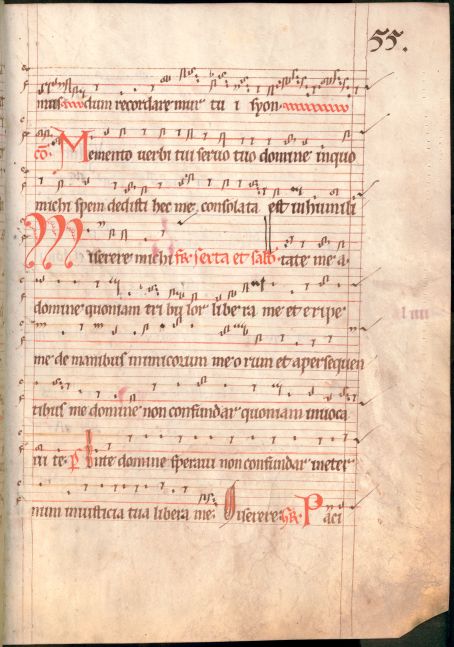 55.
mus dum recordaremur tu i syon
co Memento verbi tui servo tuo domine in quo
michi spem dedisti hec me consolata est in humili
Miserere michi fr sexta et sabb tate me a
domine quoniam tri bu lor libe ra me et eripe
me de manibus inimicorum me o rum et a persequen
tibus me domine non confundar quoniam invoca
vi te ps In te domine speravi non confundar in eter
num in iusticia tua libera me Miserere Paci